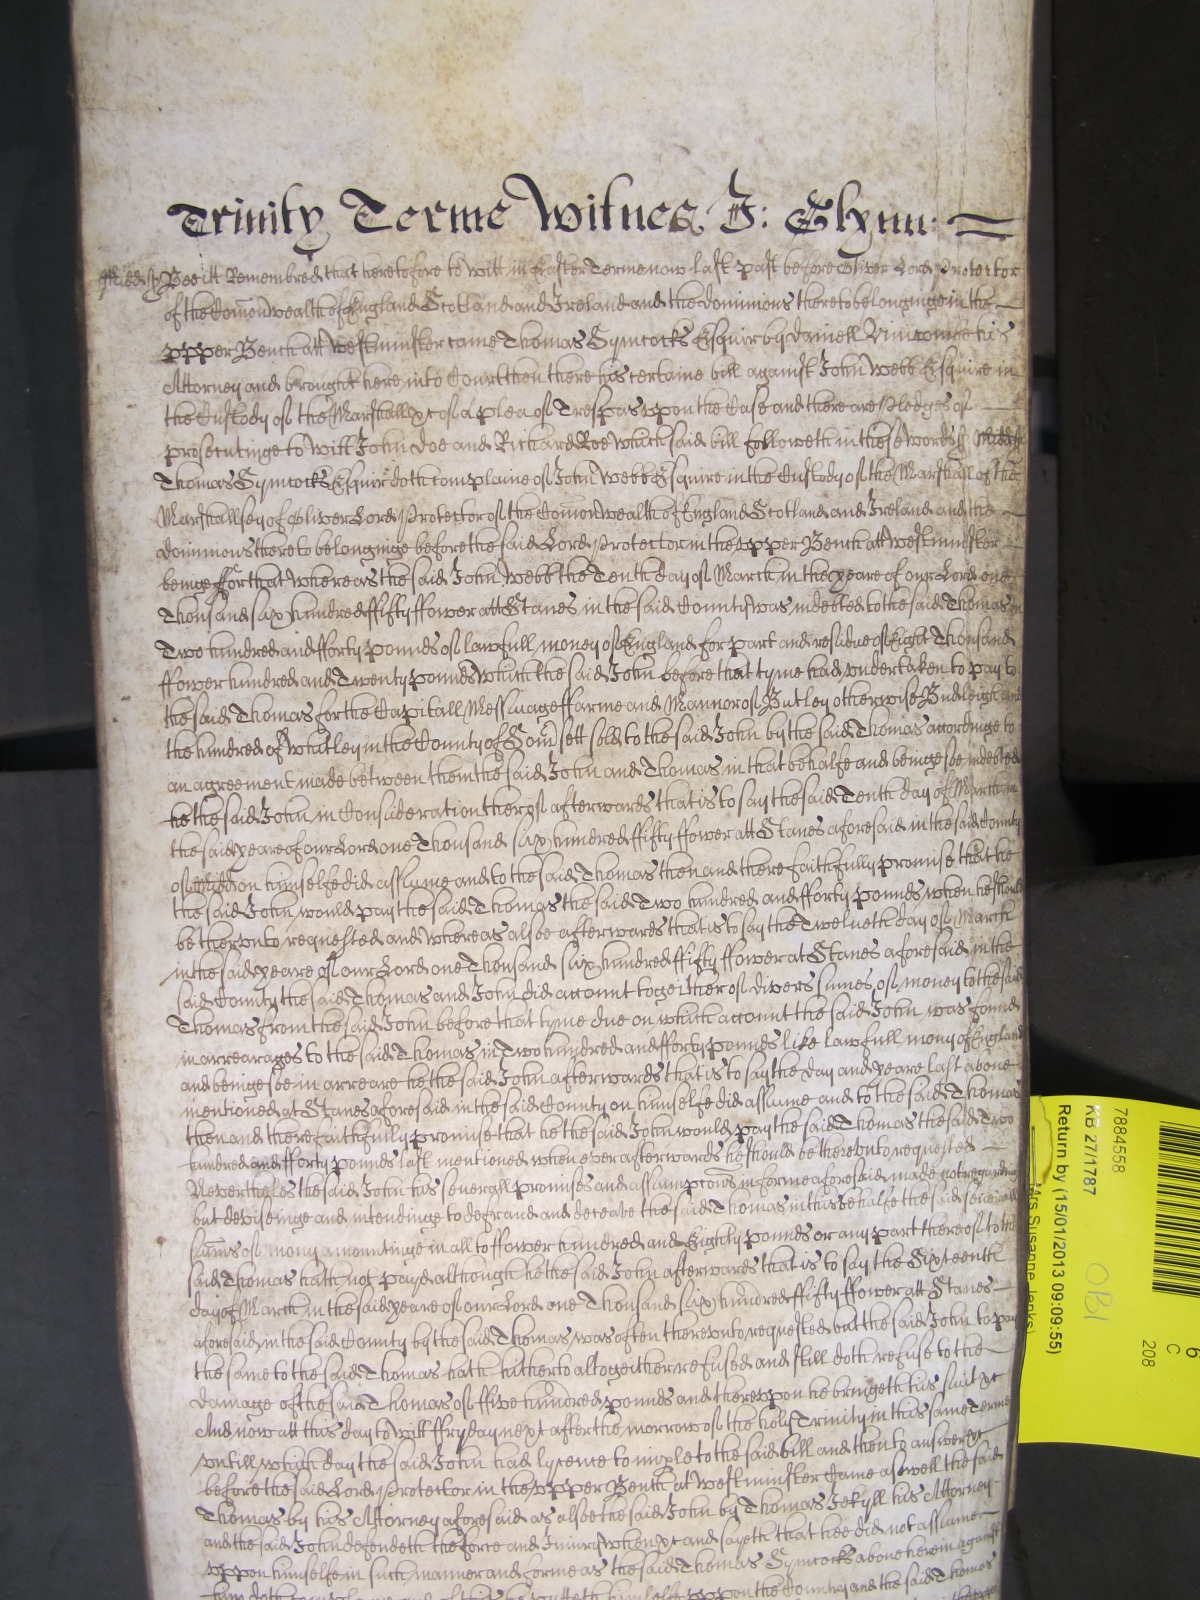 Trinity Terme Witnes J: Glynn:
Midd ss Bee itt Remembred that heretofore to witt in Easter Terme now last past before Oliver Lord Protector
of the Comonwealth of England Scotland and Ireland and the dominions thereto belonginge in the
vpper Bench att Westminster came Thomas Symcocks Esquir by Daniell his
Attorney and brought here into Court then there his certaine bill against John Webb Esquire in
the Custody of the Marshall &c of a plea of Trespas vppon the Case and there are Pledges of
prosecutinge to witt John Doe and Richard Roe which said bill followeth in these words ss Midd ss
Thomas Symcocks Esquir doth complaine of John Webb Esquire in the Custody of the Marshall of the
Marshallsey of Oliver Lord Protector of the Comonwealth of England Scotland and Ireland and the
dominions thereto belonginge before the said Lord Protector in the vpper Bench att Westminster
beinge ffor that Whereas the said John Webb the Tenth day of March in the yeare of our Lord one
Thousand six hundred ffifty ffower att Stanes in the said County was indebted to the said Thomas in
Two hundred and fforty pounds of lawfull money of England for part and residue of Eight Thousand
ffower hundred and Twenty pounds which the said John before that tyme had vndertaken to pay to
the said Thomas for the Capitall Messuage ffarme and Mannor of Butley otherwise Budleigh and
the hundred of Whitley in the County of Som sett sold to the said John by the said Thomas accordinge to
an agreement made between them the said John and Thomas in that behalfe and beinge soe indebted
he the said John in Consideration therof afterwards that is to say the said Tenth day of March in
the said yeare of our Lord one Thousand six hundred ffifty ffower att Stanes aforesaid in the said County
of Midd on himselfe did assume and to the said Thomas then and there faithfully promise that he
the said John would pay the said Thomas the said Two hundred and fforty pounds when he should
be therevnto requested and whereas alsoe afterwards that is to say the Twelueth day of March
in the said yeare of our Lord one Thousand six hundred ffifty ffower at Stanes aforesaid in the
said County the said Thomas and John did account togeither of divers sumes of money to the said
Thomas from the said John before that tyme due on which account the said John was found
in arrearages to the said Thomas in Two hundred and fforty pounds like lawfull mony of England
and beinge soe in arreare he the said John afterwards that is to say the day and yeare last aboue
mentioned at Stanes aforesaid in the said County on himselfe did assume and to the said Thomas
then and there faithfully promise that he the said John would pay the said Thomas the said Two
hundred and fforty pounds last mentioned when ever afterwards he should be therevnto requested
Neverthelos the said John his severall promises and assumpcons in forme aforesaid made not regarding
but deviseinge and intendinge to defraud and deceave the said Thomas in this behalfe the said severall
sums of mony amountinge in all to ffower hundred and Eighty pounds or any part thereof to the
said Thomas hath not payd although he the said John afterwards that is to say the Sixteenth
day of March in the said yeare of our Lord one Thousand six hundred ffifty ffower att Stanes
aforesaid in the said County by the said Thomas was often therevnto requested but the said John to pay
the same to the said Thomas hath hitherto altogeither refused and still doth refuse to the
damage of the said Thomas of ffive hundred pounds and therevppon he bringeth his suit &c
And now att this day to witt ffryday next after the morrow of the holy Trinity in this same Terme
vntill which day the said John had lycence to imple to the said bill and then to answer &c
before the said Lord Protector in the vpper Bench at Westminster Came aswell the said
Thomas by his Attorney aforesaid as alsoe the said John by Thomas Jekyll his Attorney
and the said John defendeth the force and Iniury when &c and sayeth that hee did not assume
vppon himselfe in such manner and forme as the said Thomas Symcocks aboue herein against
him doth complaine and of this he putteth himselfe vppon the Country and the said Thomas
7884558
KB 27/1787
Return by (15/01/2013 09:09:55)
Mrs Susanne Jenks)
OBI
6
C
208